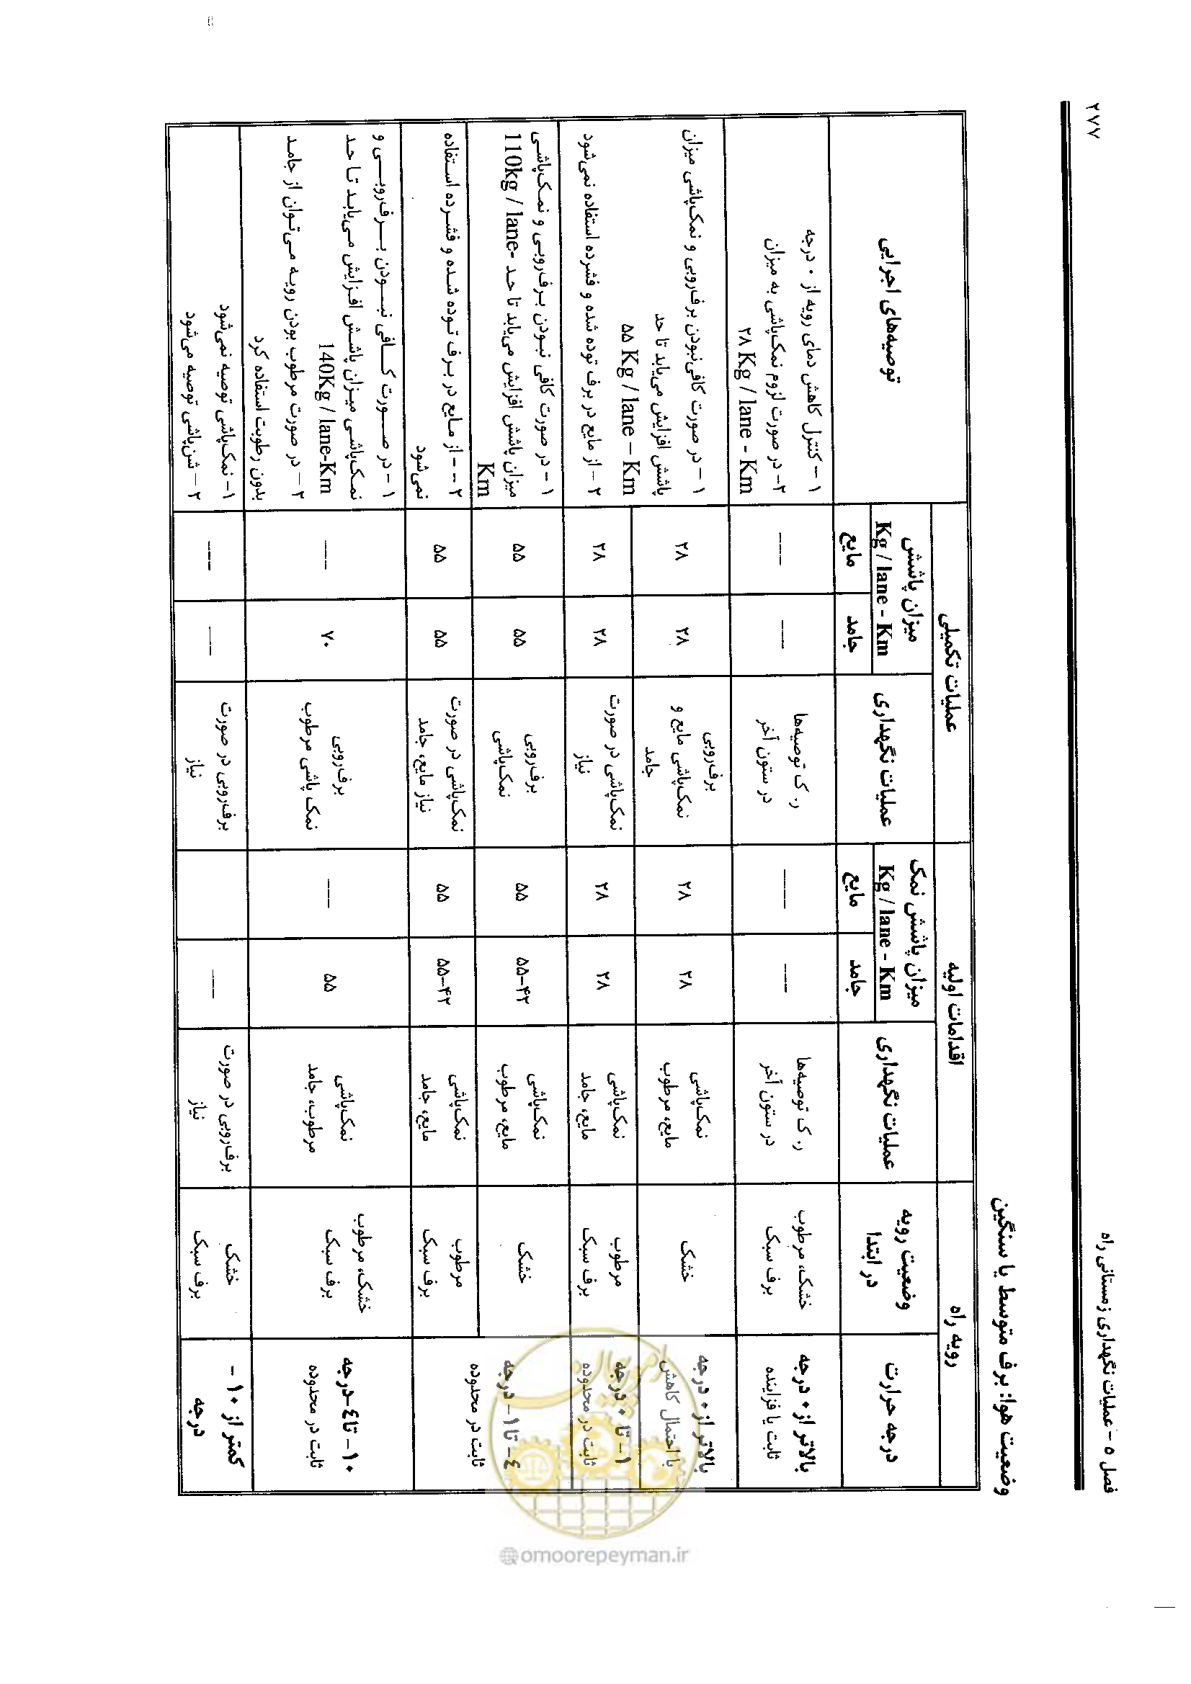 ۲۷۷
فصل ۵ - عملیات نگهداری زمستانی راه
وضعیت هوا: برف متوسط یا سنگین
رویه راه
اقدامات اولیه
عملیات تکمیلی
توصیه‌های اجرایی
درجه حرارت
وضعیت رویه
در ابتدا
عملیات نگهداری
میزان پاشش نمک
Kg / lane - Km
جامد
مایع
عملیات نگهداری
میزان پاشش
Kg / lane - Km
جامد
مایع
بالاتر از ۰ درجه
ثابت یا فزاینده
خشک، مرطوب
برف سبک
ر. ک توصیه‌ها
در ستون آخر
---
---
ر. ک توصیه‌ها
در ستون آخر
---
---
۱- کنترل کاهش دمای رویه از ۰ درجه
۲- در صورت لزوم نمک‌پاشی به میزان
۲۸ Kg / lane - Km
بالاتر از ۰ درجه
با احتمال کاهش
خشک
نمک‌پاشی
مایع، مرطوب
۲۸
۲۸
برف‌روبی
نمک‌پاشی مایع و
جامد
۲۸
۲۸
۱- در صورت کافی نبودن برف‌روبی و نمک‌پاشی میزان
پاشش افزایش می‌یابد تا حد
۵۵ Kg / lane – Km
۲- از مایع در برف توده شده و فشرده استفاده نمی‌شود
۱- تا ۰ درجه
ثابت در محدوده
مرطوب
برف سبک
نمک‌پاشی
مایع، جامد
۲۸
۲۸
نمک‌پاشی در صورت
نیاز
۲۸
۲۸
٤- تا ۱- درجه
ثابت در محدوده
خشک
نمک‌پاشی
مایع، مرطوب
۵۵-۴۲
۵۵
برف‌روبی
نمک‌پاشی
۵۵
۵۵
۱- در صورت کافی نبودن برف‌روبی و نمک‌پاشی
میزان پاشش افزایش می‌یابد تا حد 110kg / lane-
Km
مرطوب
برف سبک
نمک‌پاشی
مایع، جامد
۵۵-۴۲
۵۵
نمک‌پاشی در صورت
نیاز مایع، جامد
۵۵
۵۵
۲- - از مایع در برف توده شده و فشرده استفاده
نمی‌شود
۱۰- تا ٤- درجه
ثابت در محدوده
خشک، مرطوب
برف سبک
نمک‌پاشی
مرطوب، جامد
۵۵
---
برف‌روبی
نمک پاشی مرطوب
۷۰
---
۱- در صورت کافی نبودن برف‌روبی و
نمک‌پاشی میزان پاشش افزایش می‌یابد تا حد
140Kg / lane-Km
۲- در صورت مرطوب بودن رویه می‌توان از جامد
بدون رطوبت استفاده کرد
کمتر از ۱۰-
درجه
خشک
برف سبک
برف‌روبی در صورت
نیاز
---
برف‌روبی در صورت
نیاز
---
---
۱- نمک‌پاشی توصیه نمی‌شود
۲- شن‌پاشی توصیه می‌شود
امور پیمان
@omoorepeyman.ir